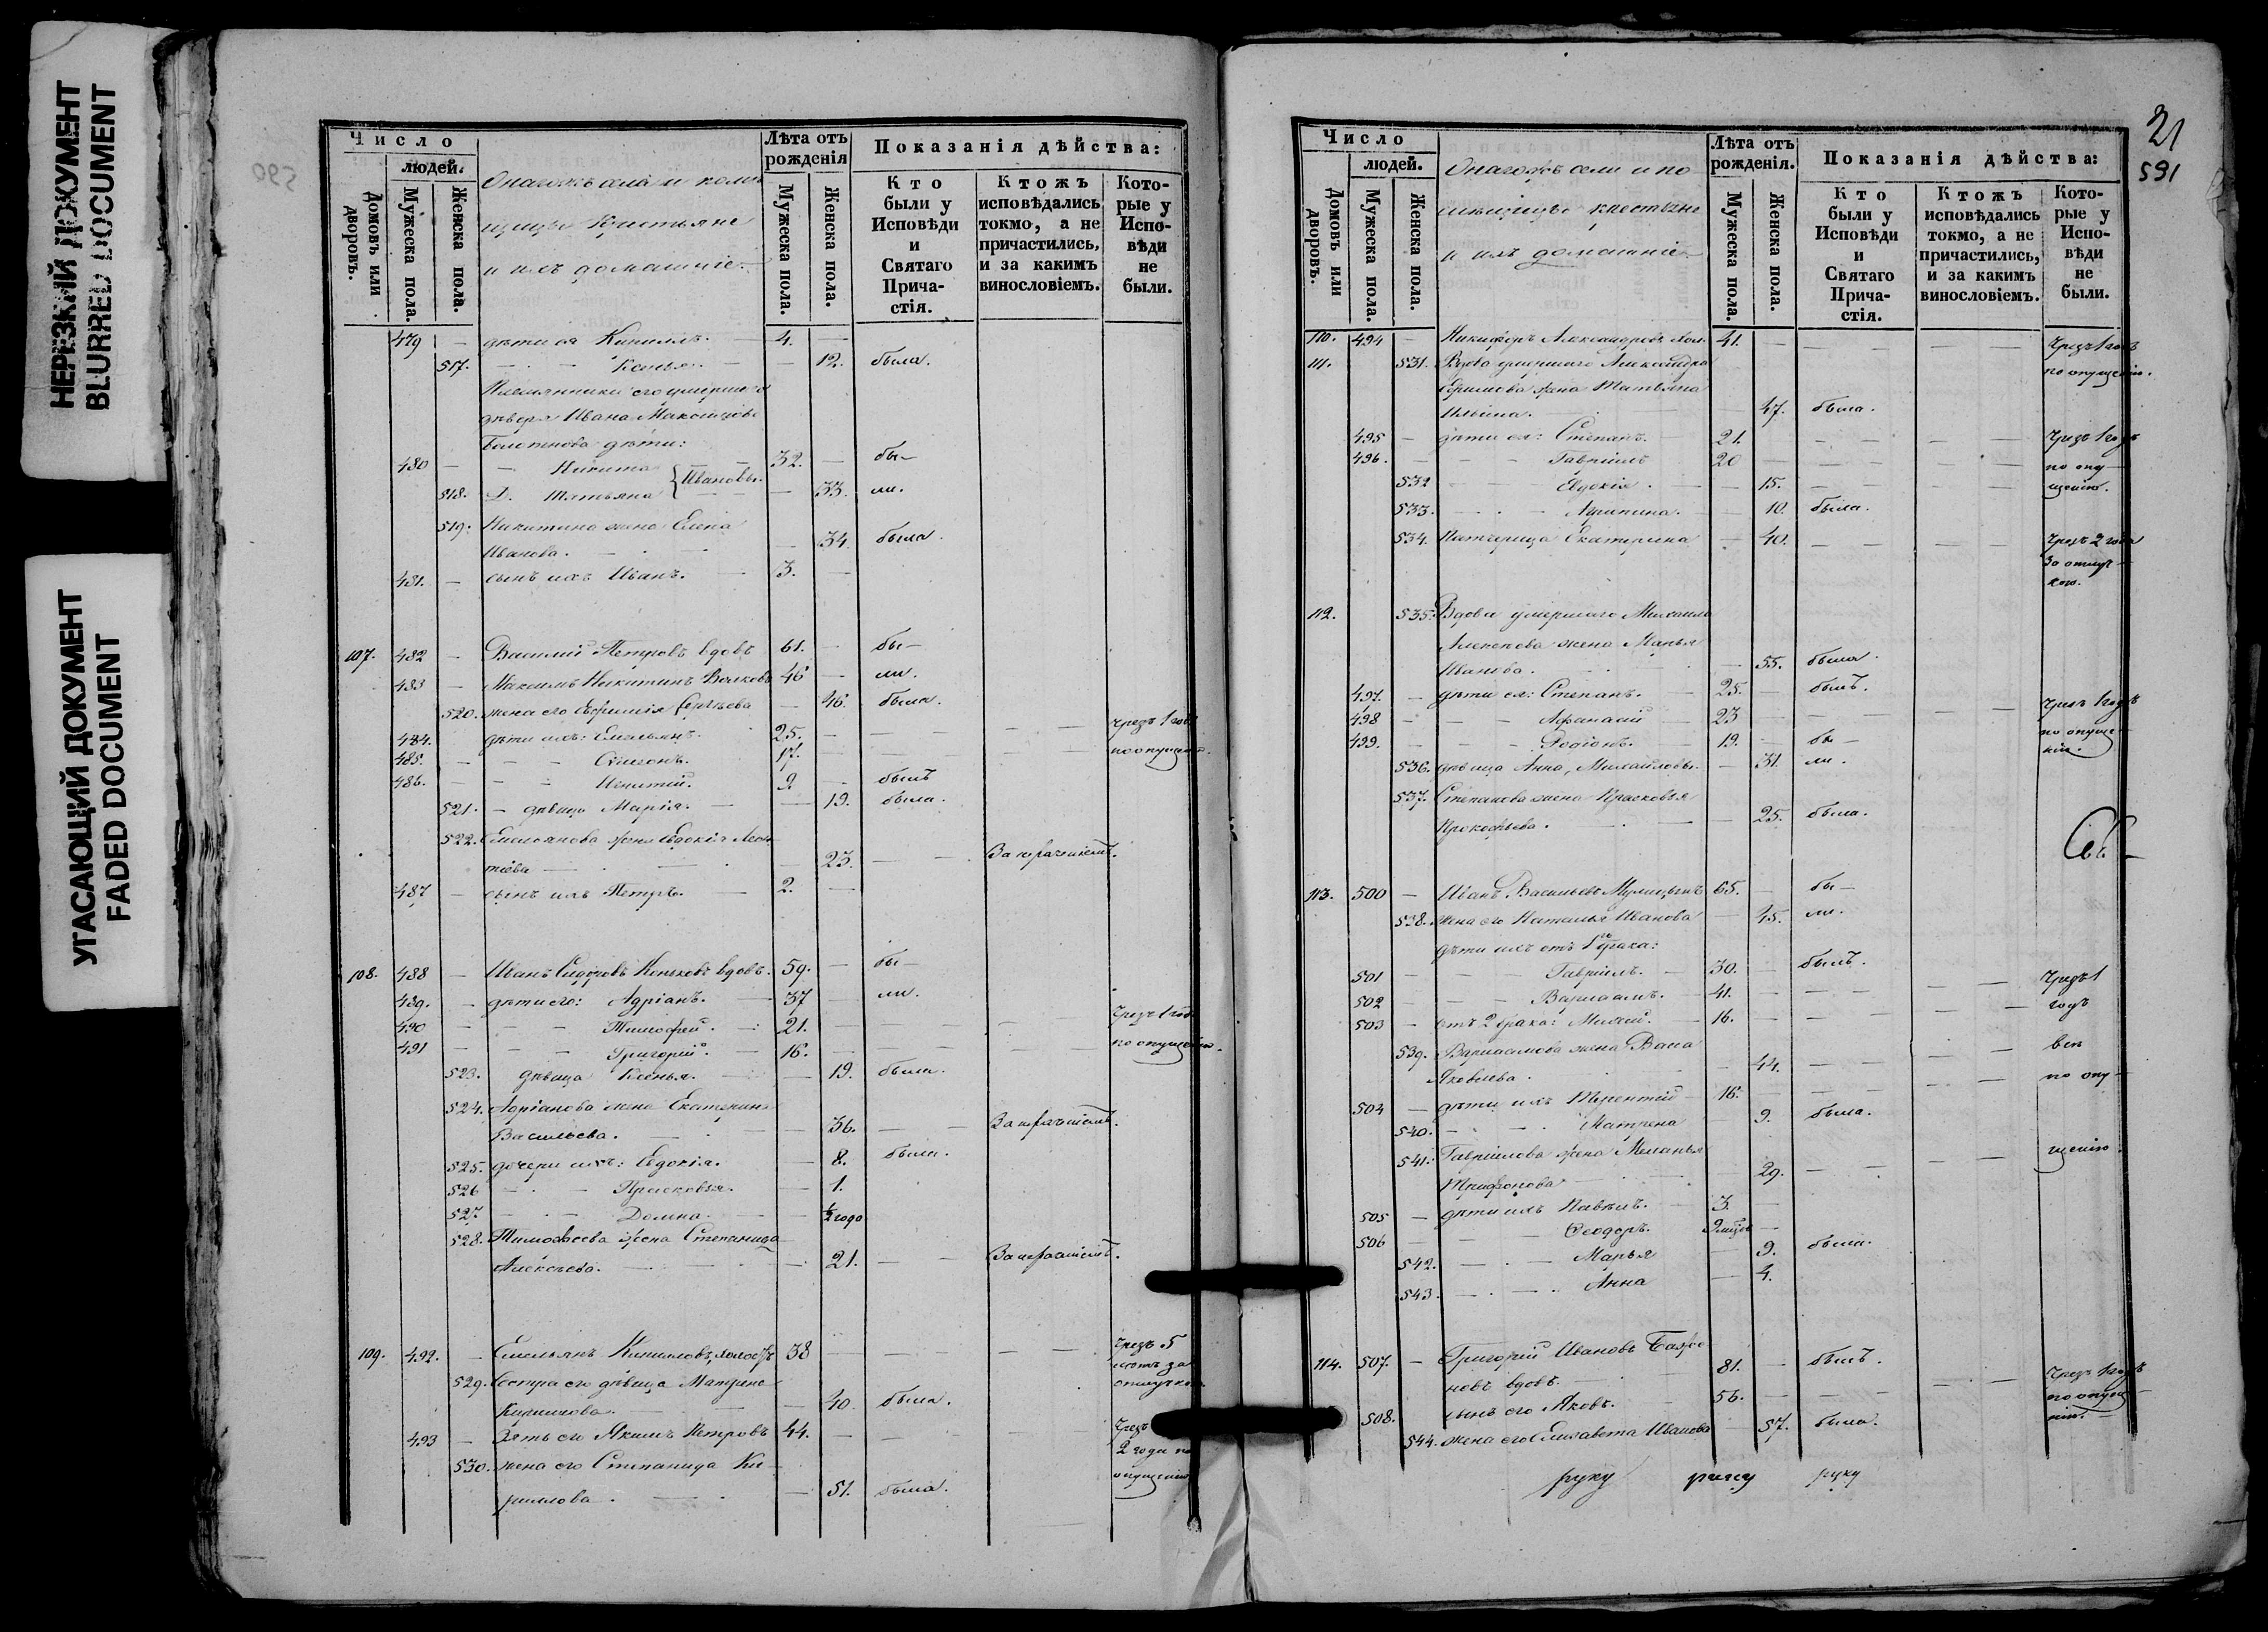 НЕРЕЗКИЙ ДОКУМЕНТ
BLURRED DOCUMENT
УГАСАЮЩИЙ ДОКУМЕНТ
FADED DOCUMENT
590
Число
людей.
Домовъ или дворовъ.
Мужеска пола.
Женска пола.
Онагожъ села и помѣ
щицы Крестьяне
и ихъ домашніе
Лѣта отъ рожденія
Мужеска пола.
Женска пола.
Показанія дѣйства:
Кто были у Исповѣди и Святаго Причастія.
Ктожъ исповѣдались токмо, а не причастились, и за какимъ винословіемъ.
Которые у Исповѣди не были.
479 — дѣти ея Кириллъ. 4. —
517. Ксенья — 12. была.
Племянники его умершаго
Ивана
дѣти:
480 — Никита 32. — бы—
Ивановы.
518. Д. Татьяна — 33. ли.
519. Никитина жена Елена
Иванова. — 34. была.
481. — сынъ ихъ Иванъ. 3. —
107. 482 — Василий Петровъ вдовъ 61. — бы—
483 — Максимъ Никитинъ 46 — ли.
520. жена его Ефимія Сергѣева — 46. была.
484. дѣти ихъ: Емельянъ. 25. — чрезъ 1 годъ
485. Симеонъ. 17. по опущен.
486. Игнатій. 9. былъ
521. — дѣвица Марія. — 19. была.
522. Емельянова жена Евдокія Леон
тіева — 23. — За
487 — сынъ ихъ Петръ. 2. —
108. 488 — Иванъ Сидоровъ вдовъ. 59. — бы—
489. — дѣти его: Адріанъ. 37 — ли.
490 — Тимофей. 21. чрезъ 1 год.
491 — Григорій. 16. по опущенію.
523. дѣвица Ксенья. — 19. была.
524. Адріанова жена Екатерина
Васильева. — 36. — За
525. дочери ихъ: Евдокія. — 8. была.
526 Прасковья. — 1.
527. Домна. — ½ года
528. Тимофеева жена Степанида
Алексѣева. — 21. — За
109. 492. — Емельянъ Кириловъ, холостъ 38 — чрезъ 5
лѣтъ за
отлучкою.
529. Сестра его дѣвица Матрена
Кирилова. — 40. была.
493 — Зять его Якимъ Петровъ 44. — Чрезъ
2 года по
опущенію
530. жена его Степанида Ки
рилова. — 51. была.
21
591
Число
людей.
Домовъ или дворовъ.
Мужеска пола.
Женска пола.
Онагожъ села и по
мѣщицы крестьяне
и ихъ домашніе
Лѣта отъ рожденія.
Мужеска пола.
Женска пола.
Показанія дѣйства:
Кто были у Исповѣди и Святаго Причастія.
Ктожъ исповѣдались токмо, а не причастились, и за какимъ винословіемъ.
Которые у Исповѣди не были.
110. 494 — Никифоръ Александровъ хол. 41. — Чрезъ 1 годъ
по опущенію.
111. 531. Вдова умершаго Александра
Ефимова жена Татьяна
Ильина. — 47. была.
495 — дѣти ея: Степанъ. 21. — Чрезъ 1 годъ
496. Гавріилъ 20 по опу
532 Евдокія. — 15. щенію.
533. Агрипина. — 10. была.
534. Падчерица Екатерина — 40. — Чрезъ 2 года
За отлуч
кою.
112. 535. Вдова умершаго Михаила
жена Марья
Иванова. — 55. была.
497. — дѣти ея: Степанъ. 25. — былъ.
498 — Афанасій 23 — Чрезъ 1 годъ
499. Родіонъ. 19. — бы — по опуще
536. дѣвица Анна, Михайловы. — 31. ли. нію.
537. Степанова жена Прасковья
Прокофьева. — 25. была.
113. 500 — Иванъ Васильевъ 65. — бы—
538. жена его Наталья Иванова — 45. ли.
дѣти ихъ отъ 1го брака:
501 — Гавріилъ. 30. — былъ.
502 — Варлаамъ. 41. — Чрезъ 1
503 — отъ 2 брака: 16. — годъ
539. Варлаамова жена Васа всѣ
Яковлева. — 44. — по опу—
504 — дѣти ихъ Терентій 16. —
540. Матрена 9. была.
541. Гавріилова жена Меланья щенію
Трифонова — 29. —
505 — дѣти ихъ Павелъ. 3. —
506 Ѳеодоръ. —
542. Марья — 9. была.
543. Анна — 4.
114. 507. — Григорій Ивановъ Бажо
новъ вдовъ. 81. — былъ.
508. сынъ его Яковъ. 56. — Чрезъ 1 годъ
по опуще
544. жена его Елисавета Иванова — 57. была. нію.
руку руку руку